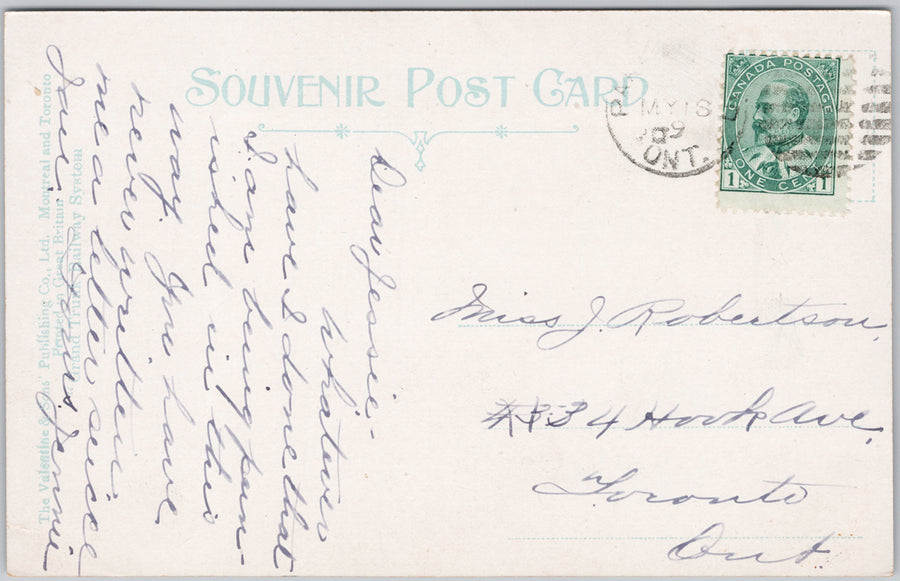 SOUVENIR POST CARD
MY 18
09
ONT.
CANADA POSTAGE
1 ONE CENT 1
Dear Jessie-
Whatever
have I done that
I am being pun-
ished in this
way. You have
never written
me a letter since
June.
Jennie
Miss J. Robertson,
334 Hook Ave.
Toronto
Ont
The Valentine & Sons' Publishing Co., Ltd. Montreal and Toronto
Printed in Great Britain
Grand Trunk Railway System